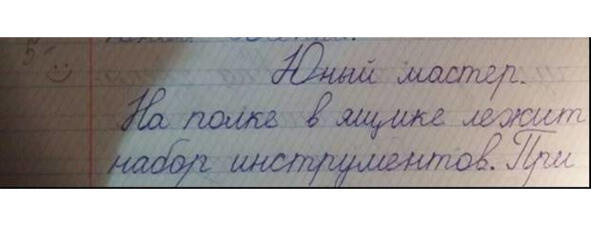 Юный мастер.
На полке в ящике лежит
набор инструментов. При